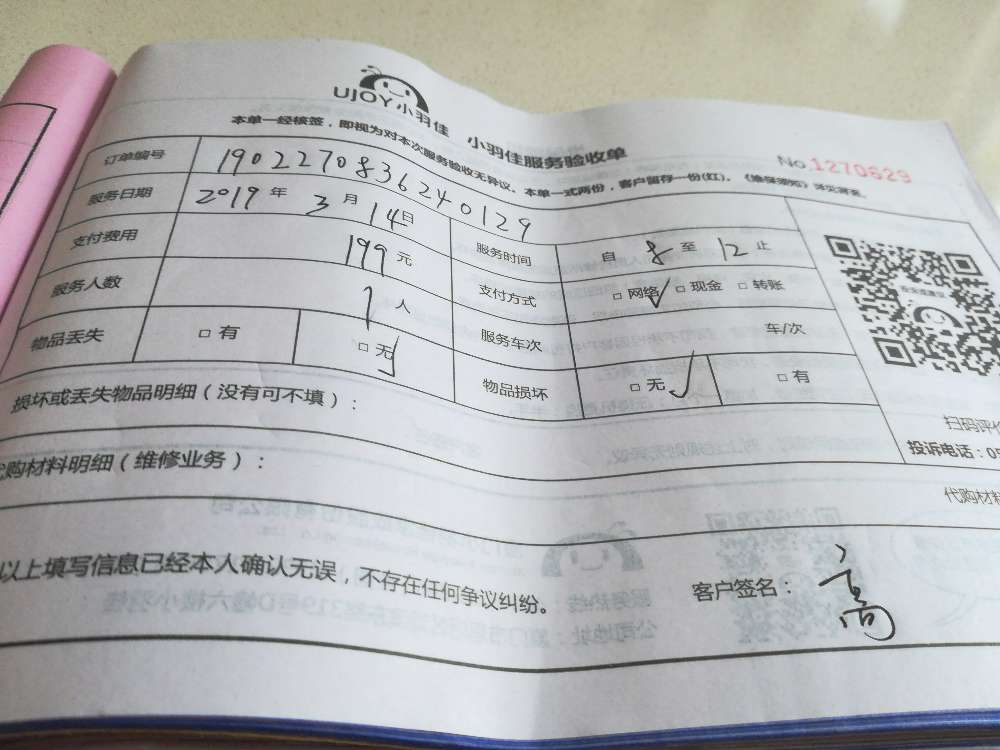 UJOY小羽佳 小羽佳服务验收单
No.1270629
本单一经核签，即视为对本次服务验收无异议。本单一式两份，客户留存一份(红)。
订单编号 190227083624012​9
服务日期 2019年 3月 14日 服务时间 自 8 至 12 止
支付费用 199元 支付方式 □网络✓ □现金 □转账
服务人数 1人 服务车次 车/次
物品丢失 □有 □无✓ 物品损坏 □无✓ □有
损坏或丢失物品明细（没有可不填）：
扫码评价
投诉电话：05
代购材料明细（维修业务）：
代购材料
以上填写信息已经本人确认无误，不存在任何争议纠纷。 客户签名：高